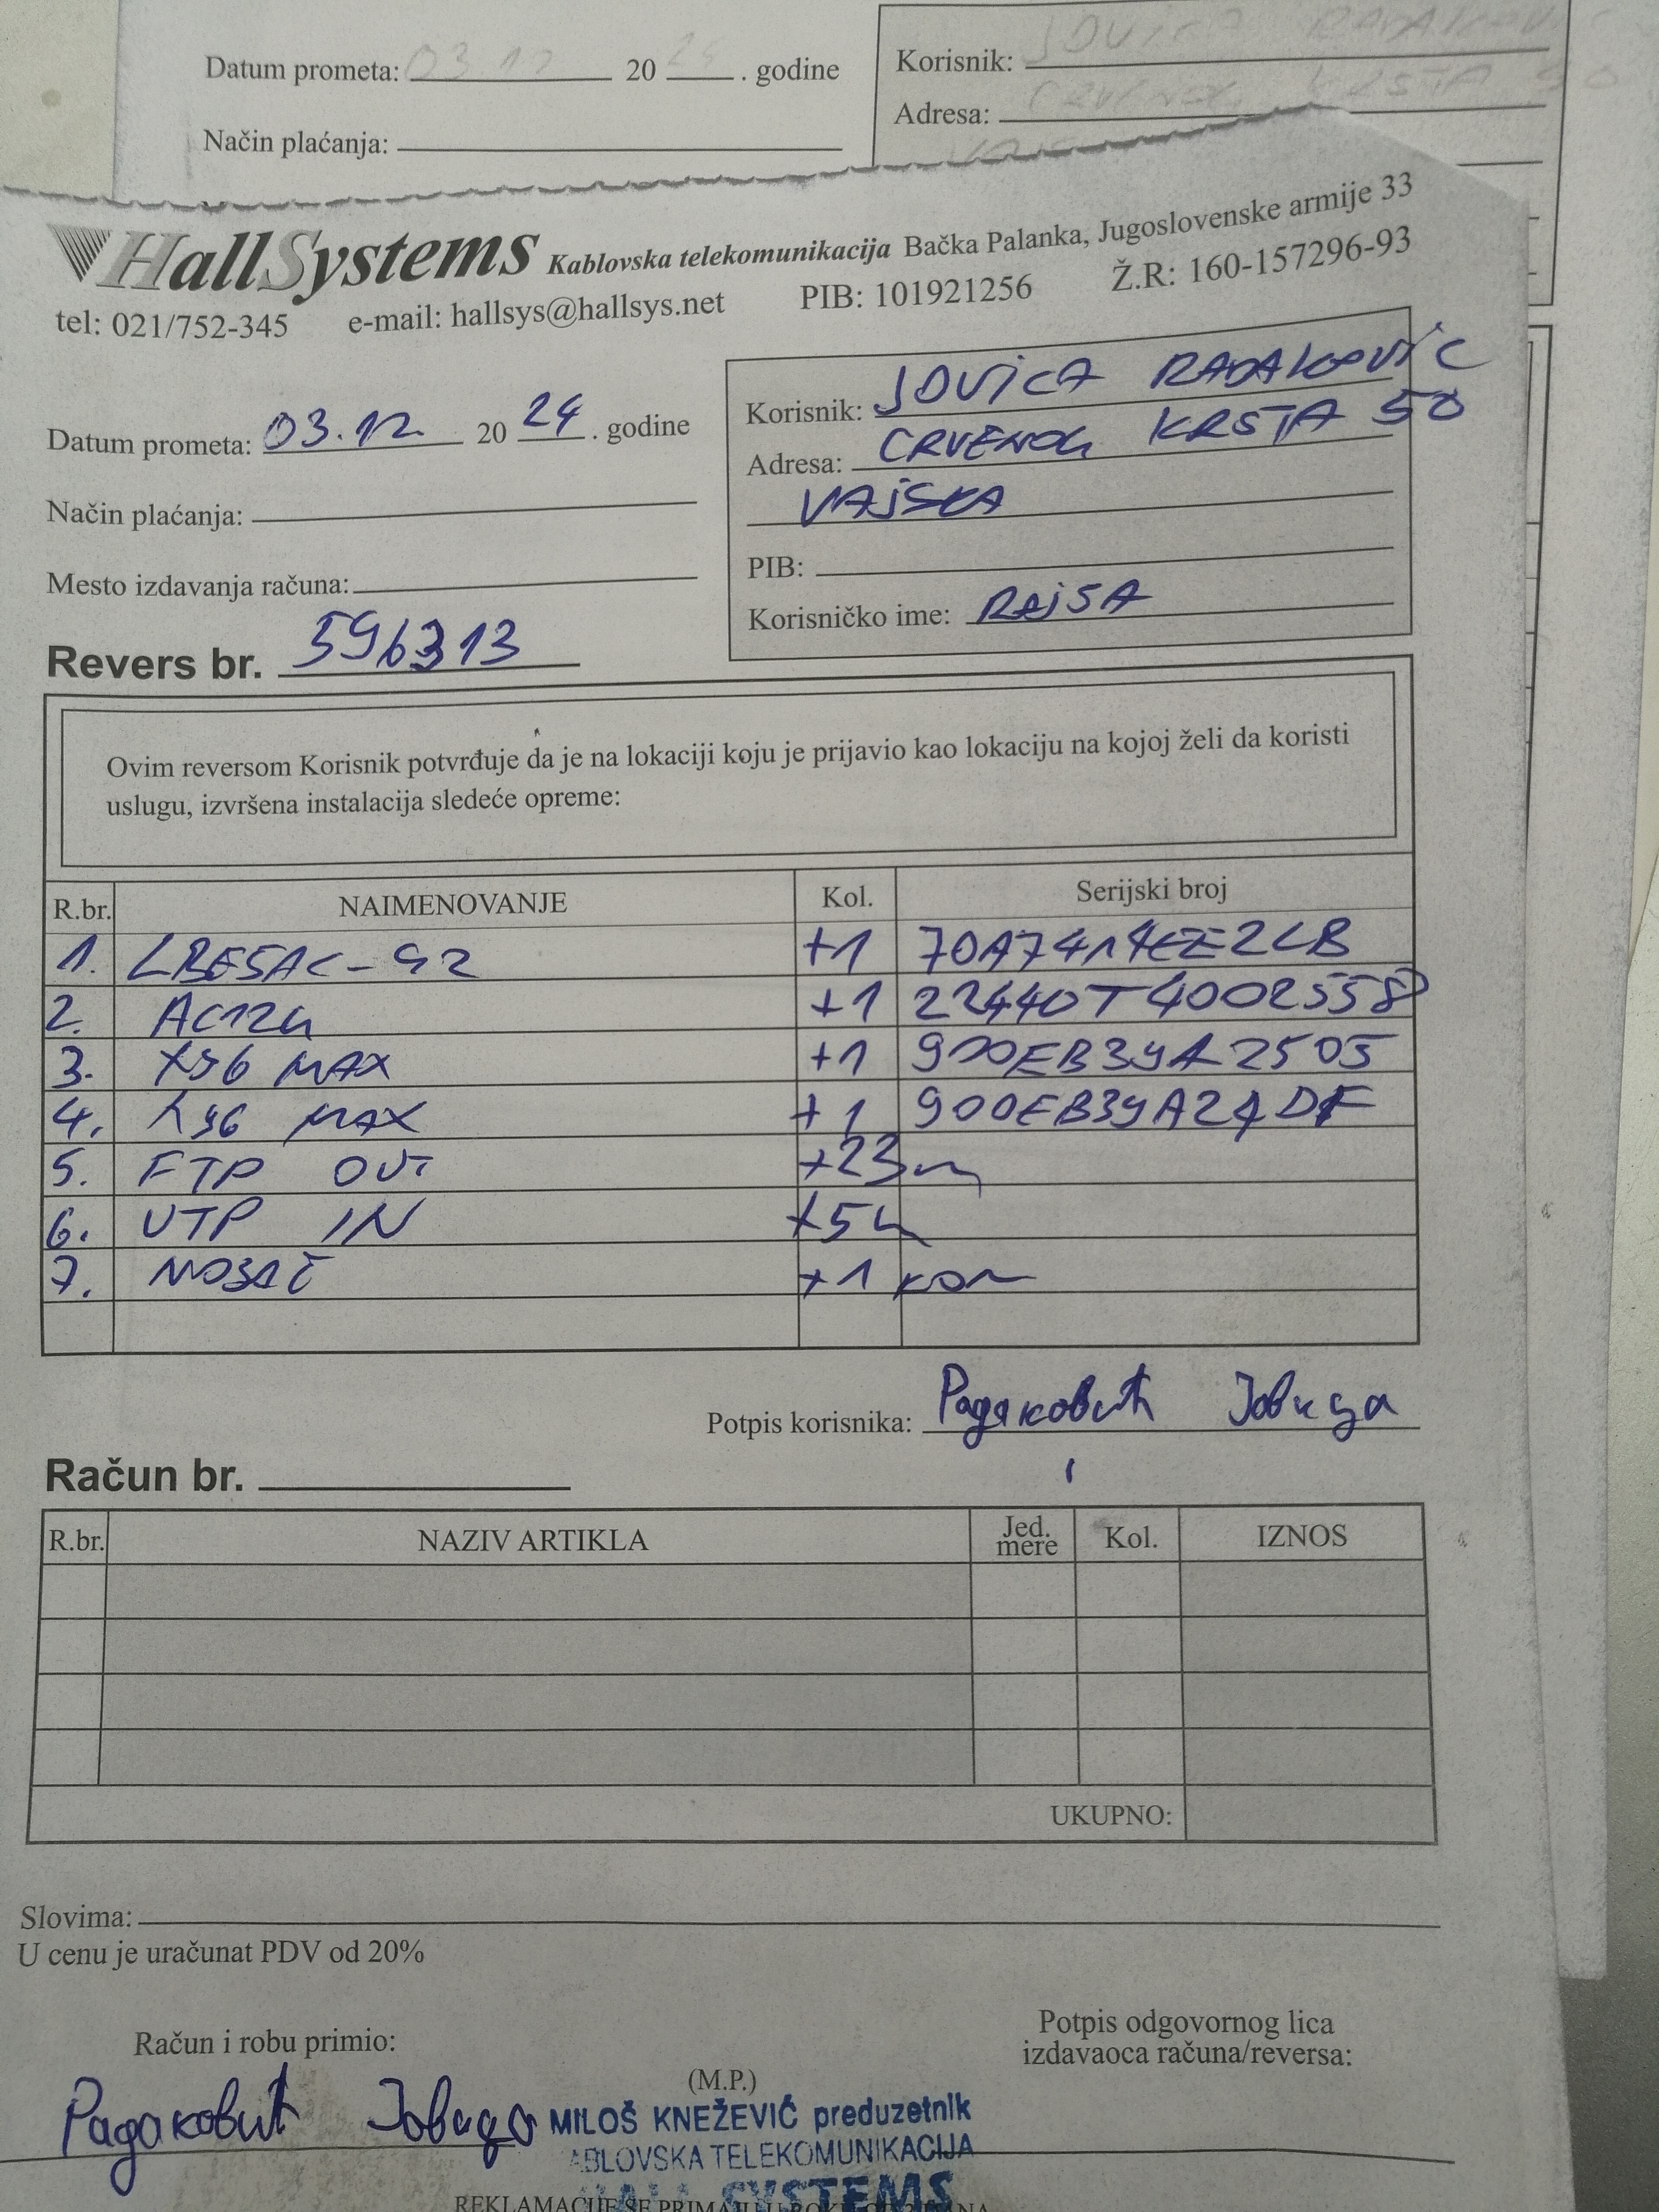 Datum prometa: 03 12 20 24 . godine
Korisnik: JOVICA RADAKOVIĆ
Adresa: CRVENOG KRSTA 50
Način plaćanja:
HallSystems Kablovska telekomunikacija Bačka Palanka, Jugoslovenske armije 33
tel: 021/752-345 e-mail: hallsys@hallsys.net PIB: 101921256 Ž.R: 160-157296-93
Korisnik: JOVICA RADAKOVIĆ
Datum prometa: 03.12. 20 24 . godine
Adresa: CRVENOG KRSTA 50
VAJSKA
Način plaćanja:
PIB:
Mesto izdavanja računa:
Korisničko ime: RAJSA
Revers br. 596313
Ovim reversom Korisnik potvrđuje da je na lokaciji koju je prijavio kao lokaciju na kojoj želi da koristi
uslugu, izvršena instalacija sledeće opreme:
R.br. NAIMENOVANJE Kol. Serijski broj
1. LBE5AC-G2 +1
2. AC12G +1 22440T4002558
3. X96 MAX +1 900EB39A2505
4. X96 MAX +1 900EB39A24DF
5. FTP OUT +23m
6. UTP IN +5m
7. NOSAČ +1 kom
Potpis korisnika: Радаковић Јовица
Račun br.
R.br. NAZIV ARTIKLA Jed. mere Kol. IZNOS
UKUPNO:
Slovima:
U cenu je uračunat PDV od 20%
Račun i robu primio:
Potpis odgovornog lica
izdavaoca računa/reversa:
(M.P.)
Радаковић Јовица
MILOŠ KNEŽEVIĆ preduzetnik
ABLOVSKA TELEKOMUNIKACIJA
SYSTEMS
REKLAMACIJE SE PRIMAJU U ROKU